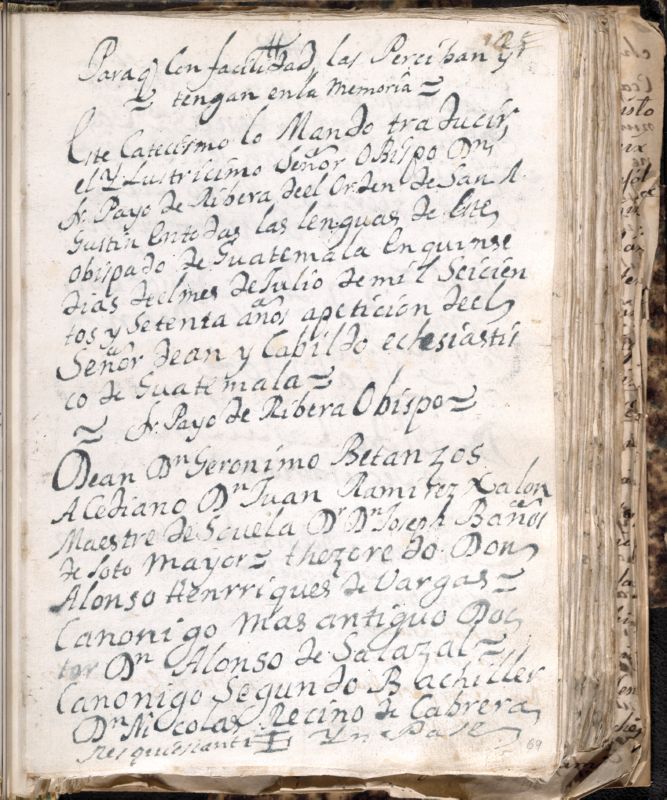 Paraq Con facilidad, las Perciban y
tengan en la memoria~
Este Catecismo lo Mando traducir
el Y Lustricimo Señor OBispo Dn
Fr. Payo de Ribera deel Orden de San A
Gustin entodas las lenguas de Este
obispado de Guatemala Enquinse
dias deelmes de Julio de mil Seicien
tos y Setenta años apetición deel
Señor dean y Cabildo eclesiasti
co de Guatemala~
~ Fr. Payo de Ribera Obispo~
Dean Dn Geronimo Betanzos
ACediano Dn Juan Ramirez Xalon
Maestre de Scuela Dr Dn Joseph Baños
de Soto Mayor~ thezorero Don
Alonso Henrriques de Vargas~
Canonigo Mas antiguo Doc
tor Dn Alonso de Salazal~
Canonigo Segundo Bachiller
Dn Nicolas Recino de Cabrera
Resquiescant Yn Pase
69